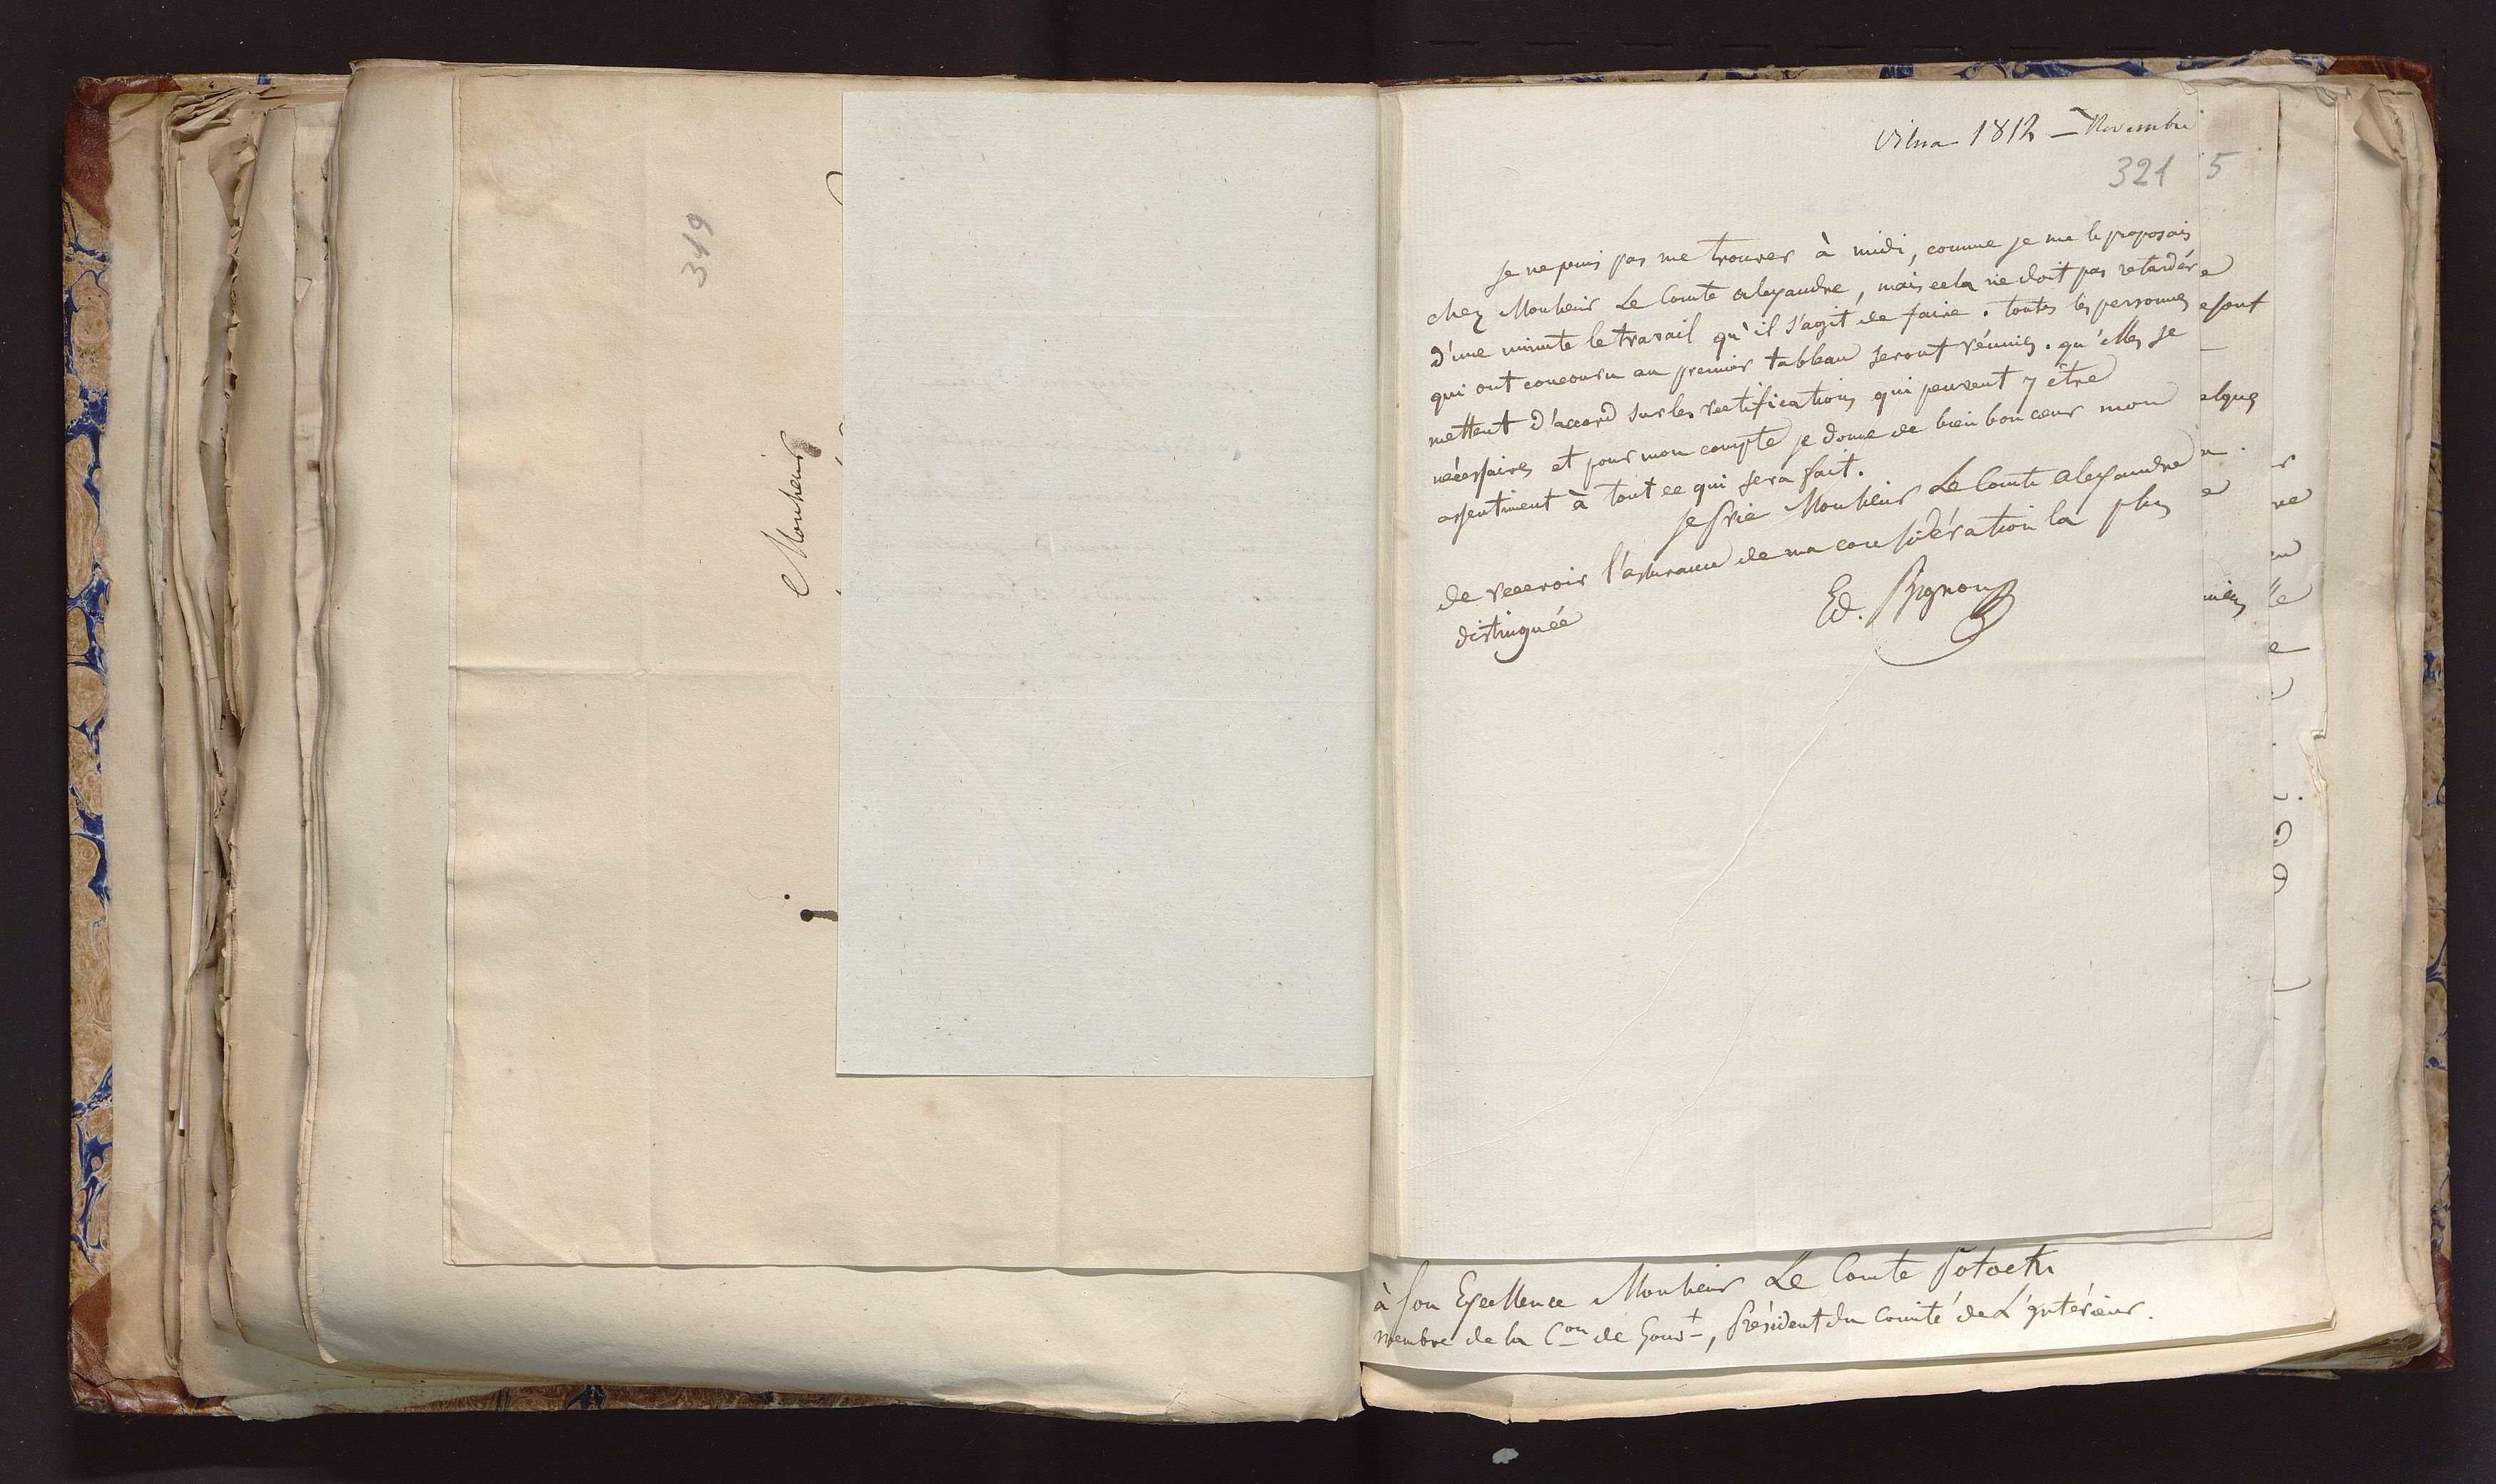 319
Monsieur
Vilna 1812 — Novembre
321
5
Je ne puis pas me trouver à midi, comme je me le proposais
chez Monsieur Le Comte alexandre, mais cela ne doit pas retarder
d'une minute le travail qu'il s'agit de faire. toutes les personnes
qui ont concouru au premier tableau seront réunies. qu'elles se
mettent d'accord sur les rectifications qui peuvent y être
nécessaires et pour mon compte je donne de bien bon cœur mon
assentiment à tout ce qui sera fait.
Je prie Monsieur Le Comte alexandre
de recevoir l'assurance de ma considération la plus
distinguée
Ed. Bignon
à Son Excellence Monsieur Le Comte Potocki
membre de la C.on de Gouv.t, Président du Comité de L'Intérieur.